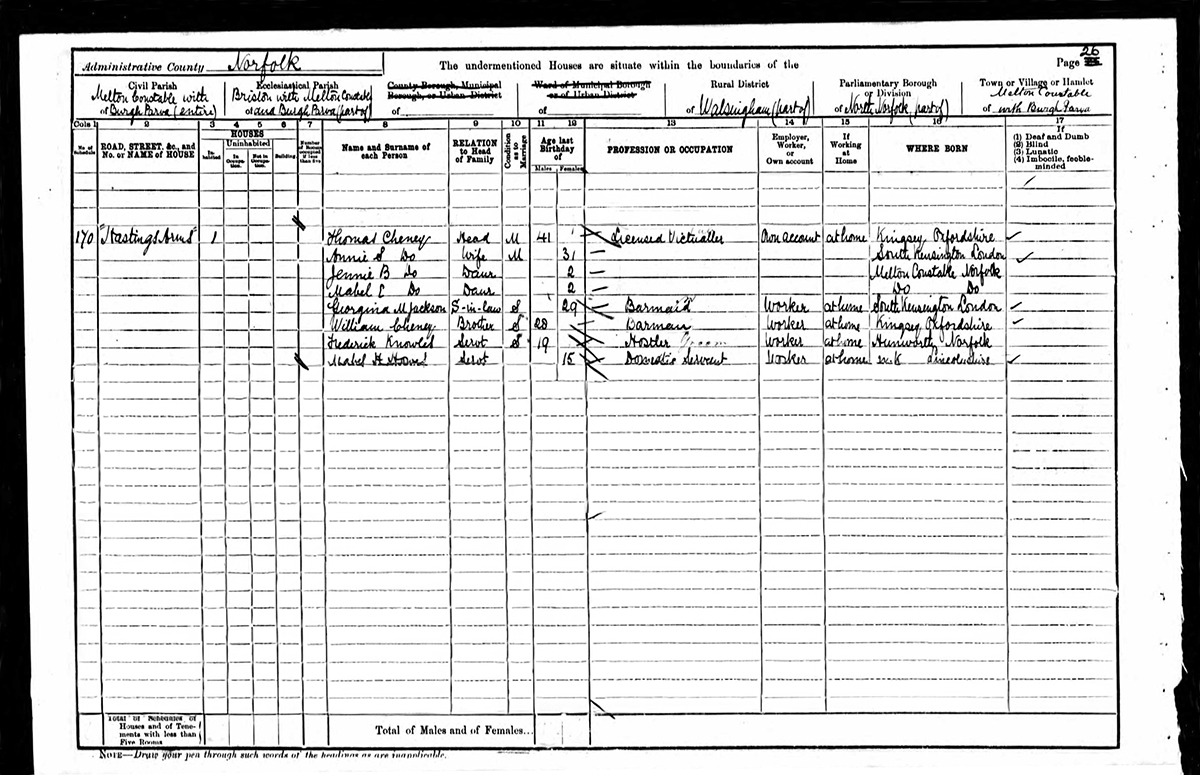 Administrative County Norfolk
The undermentioned Houses are situate within the boundaries of the
Page 26
Civil Parish
of Melton Constable with Burgh Parva (entire)
Ecclesiastical Parish
of Briston with Melton Constable and Burgh Parva (part of)
County Borough, Municipal Borough, or Urban District
of
Ward of Municipal Borough or of Urban District
of
Rural District
of Walsingham (part of)
Parliamentary Borough or Division
of North Norfolk (part of)
Town or Village or Hamlet
of Melton Constable with Burgh Parva
Cols 1 2 3 4 5 6 7 8 9 10 11 12 13 14 15 16 17
No. of Schedule
ROAD, STREET, &c., and No. or NAME of HOUSE
HOUSES
Inhabited
Uninhabited
In Occupation.
Not in Occupation.
Building
Number of Rooms occupied if less than five
Name and Surname of each Person
RELATION to Head of Family
Condition as to Marriage
Age last Birthday of
Males Females
PROFESSION OR OCCUPATION
Employer, Worker, or Own account
If Working at Home
WHERE BORN
If
(1) Deaf and Dumb
(2) Blind
(3) Lunatic
(4) Imbecile, feeble-minded
170 "Hastings Arms" 1 Thomas Cheney Head M 41 Licensed Victualler Own account at home Kingsey Oxfordshire
Annie S Do Wife M 31 South Kensington London
Jennie B Do Daur 2 Melton Constable Norfolk
Mabel E Do Daur 2 Do Do
Georgina M Jackson S-in-law S 29 Barmaid Worker at home South Kensington London
William Cheney Brother S 28 Barman Worker at home Kingsey Oxfordshire
Frederick Knowles Servt S 19 Hostler Groom Worker at home Hunworth Norfolk
Mabel H Servt 15 Domestic Servant Worker at home Lincolnshire
Total of Schedules of Houses and of Tenements with less than Five Rooms
Total of Males and of Females...
NOTE—Draw your pen through such words of the headings as are inapplicable.